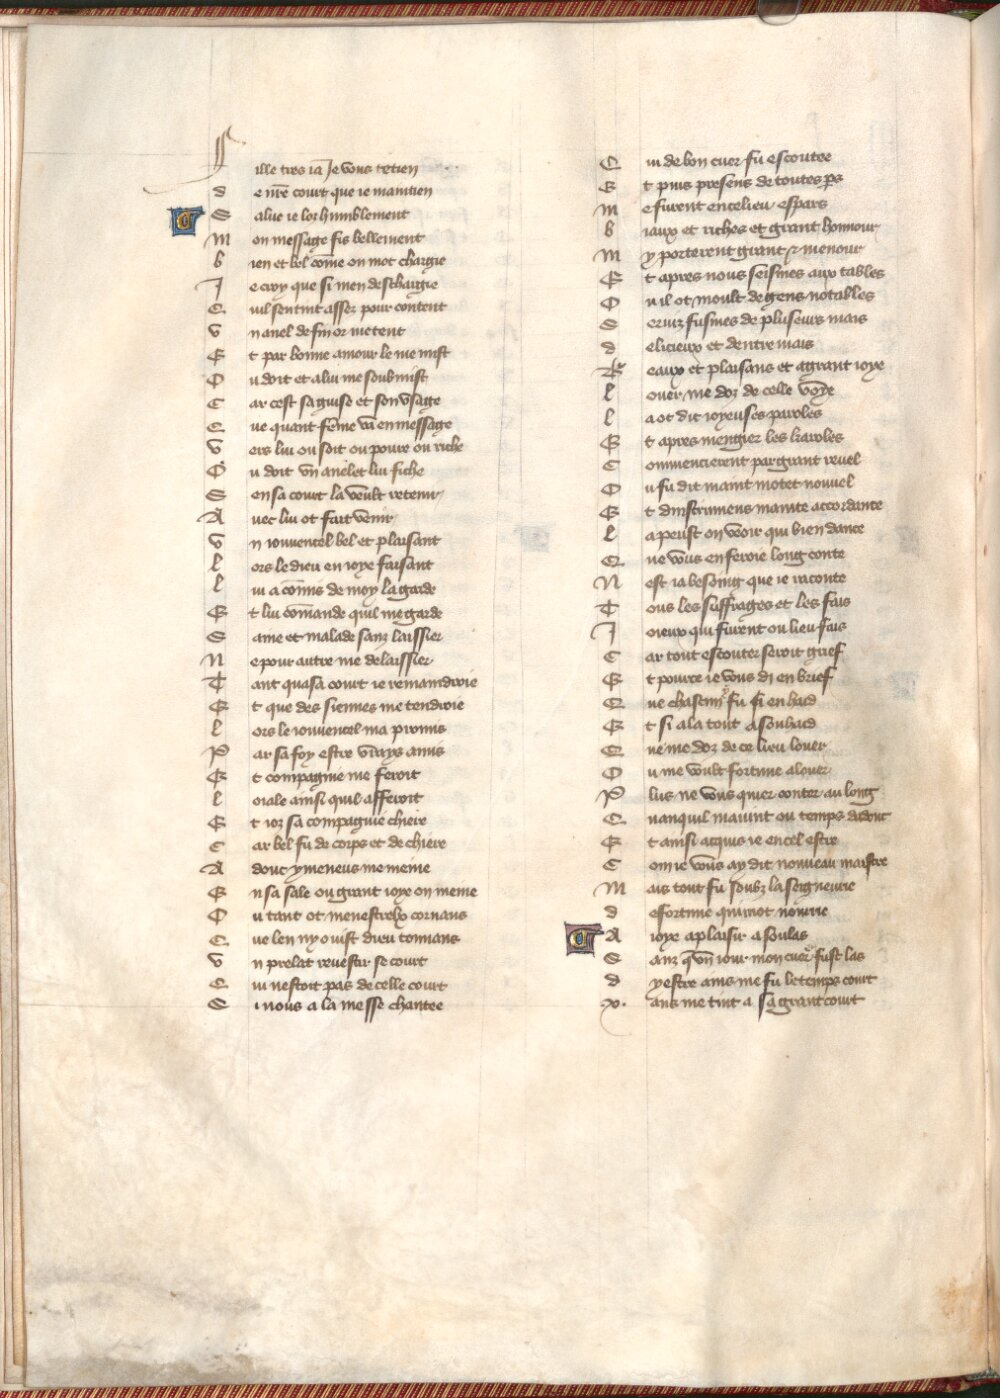 Fille tres ia Je vous retien
de nr̄e court que ie maintien
Salue ie lors humblement
Mon message fis bellement
bien et bel cōme on mot chargie
Je croy que si men deschargie
Quil sen tint assez pour content
Vn anel de fin or me tent
Et par bonne amour le me mist
Ou doit et a lui me soubmist
Car cest sa guise et son vsage
Que quant fēme va en message
Vers lui ou soit ou poure ou riche
Ou doit vn anelet lui fiche
Sen sa court la veult retenir
Auec lui ot fait venir
Vn iouuencel bel et plaisant
lors le dieu en ioye faisant
lui a cōmis de moy la garde
Et lui cōmande quil me garde
Saine et malade sanz laissier
Ne pour autre me delaissier
Tant qua sa court ie remaindroie
Et que des siennes me tendroie
lors le iouuencel ma promis
Par sa foy estre vrays amis
Et compagnie me feroit
loiale ainsi quil afferoit
Et ioz sa compagnie chiere
Car bel fu de corps et de chiere
Adont ymeneus me meine
En sa sale ou grant ioye on meine
Ou tant ot menestrelx cornans
Que len ny ouist dieu tonnans
Vn prelat reuestir se court
Qui nestoit pas de celle court
Si nous a la messe chantee
Qui de bon cuer fu escoutee
Et puis presens de toutes p̄s
Me furent en ce lieu espars
biaux et riches et grant honnour
My porterent grant et menour
Et apres nous seismes aux tables
Ou il ot moult de gens notables
Seruiz fusmes de pluseurs mais
delicieux et dentremais
Beaux et plaisans et a grant ioye
louer me doz de celle voye
la ot dit ioyeuses paroles
Et apres mengier les karoles
Commencierent par grant reuel
Ou fu dit maint motet nouuel
Et dinstrumens mainte accordance
la peust on veoir qui bien dance
Que vous en feroie long conte
Nest ia besoing que ie raconte
Tous les suffrages et les fais
Joieux qui furent ou lieu fais
Car tout escouter seroit grief
Et pource ie vous di en brief
Que chascun y fu si en haid
Et si a la tout a souhaid
Que me doz de ce lieu louer
Ou me voult fortune alouer
Plus ne vous quier conter au long
Quanquil mauint ou temps adont
Et ainsi acquis ie en cel estre
Com ie vous ay dit nouueau maistre
Mais tout fu soubz la seigneurie
de fortune qui mot nourrie
A ioye a plaisir a soulas
Sanz q̄ vn iour mon cuer fust las
dy estre ains me fu le temps court
.x. ans me tint a sa grant court